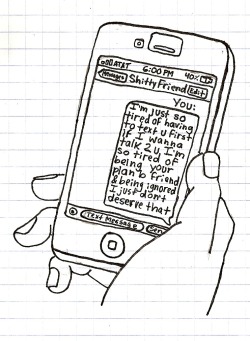 AT&T 6:00 PM 40%
Messages ShittyFriend Edit
You:
I'm just so
tired of having
to text u first
if I wanna
talk 2 u. I'm
so tired of
being your
plan b friend
& being ignored
I just don't
deserve that
Text Message Send